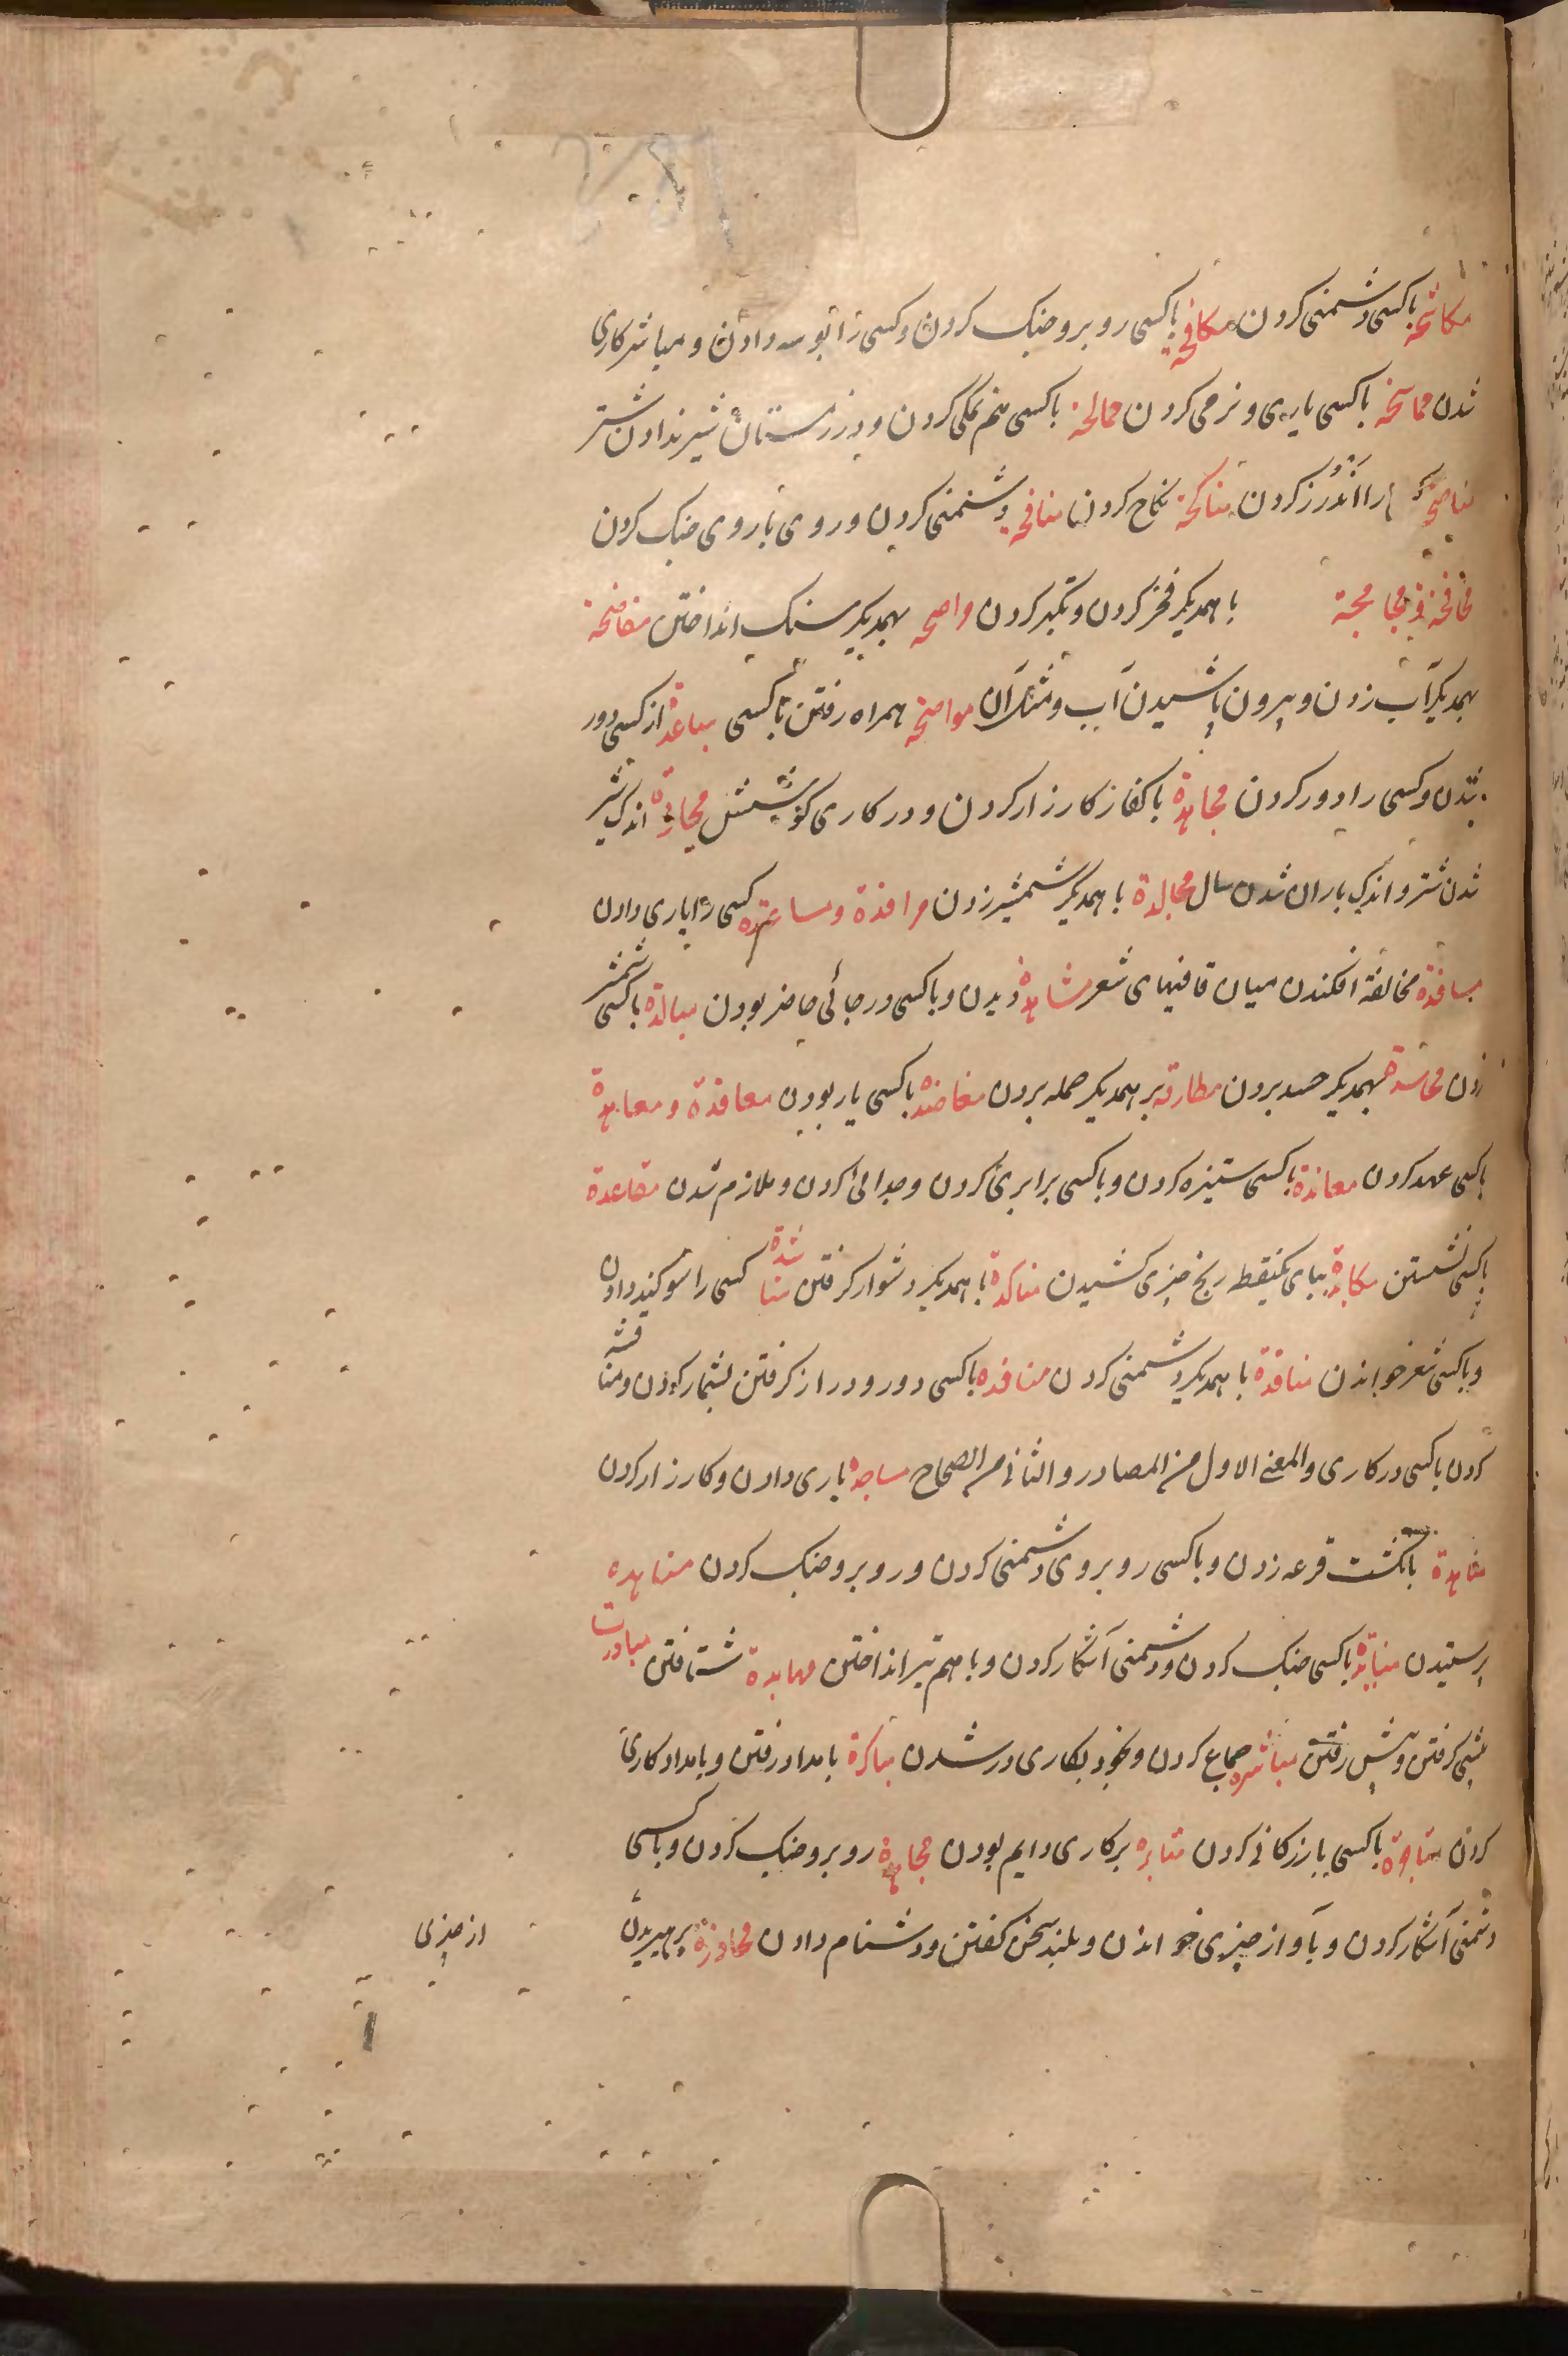 مکاشحة باکسی دشمنی کردن مکافحة باکسی روبرو جنک کردن و کسی را بوسه دادن و مباشر کاری
شدن مماسحة باکسی یاری و نرمی کردن ممالحة باکسی هم نمکی کردن و در زمستان شیر ندادن شتر
مناصحة را اندرز کردن مناکحة نکاح کردن منافحة دشمنی کردن و روی با روی جنک کردن
با همدیکر فخر کردن و تکبر کردن بهمدیکر سنک انداختن مناضحة
بهمدیکر آب زدن و بیرون پاشیدن آب و مشک آن مواضحة همراه رفتن باکسی مباعدة از کسی دور
شدن و کسی را دور کردن مجاهدة با کفار کارزار کردن و در کاری کوشش محاردة اندک شیر
شدن شتر و اندک باران شدن سال مجالدة با همدیکر شمشیر زدن مرافدة و مساعدة کسی را یاری دادن
مسافدة مخالفة افکندن میان قافیهای شعر مشاهدة دیدن و باکسی در جائی حاضر بودن مبالدة باکسی شمشیر
زدن محاسدة بهمدیکر حسد بردن مطاردة بر همدیکر حمله بردن معاضدة باکسی یار بودن معاقدة و معاهدة
باکسی عهد کردن معاندة باکسی ستیزه کردن و باکسی برابری کردن و جدائی کردن و ملازم شدن مقاعدة
باکسی نشستن مکابدة رنج چیزی کشیدن مناکدة با همدیکر دشوار کرفتن مناشدة کسی را سوکند دادن
و باکسی شعر خواندن مناقدة با همدیکر دشمنی کردن منافدة باکسی دور و دراز کرفتن بشمار کردن و مناقشه
کردن باکسی در کاری والمعنی الاول من المصادر والثانی من الصحاح مساجدة یاری دادن و کارزار کردن
مناهدة بانکشت قرعه زدن و باکسی روبروی دشمنی کردن و روبرو جنک کردن
پرستیدن منابذة باکسی جنک کردن و دشمنی آشکار کردن و با هم تیر انداختن مهابدة شتافتن مبادرت
پیشی کرفتن و پیش رفتن مباشرة جماع کردن و بخود بکاری در شدن مباکرة بامداد رفتن و بامداد کاری
کردن متاجرة باکسی بازرکانی کردن مثابرة بر کاری دایم بودن مجاهرة روبرو جنک کردن و باکسی
دشمنی آشکار کردن و بآواز چیزی خواندن و بلند سخن کفتن و دشنام دادن محاذرة پرهیزیدن
از چیزی